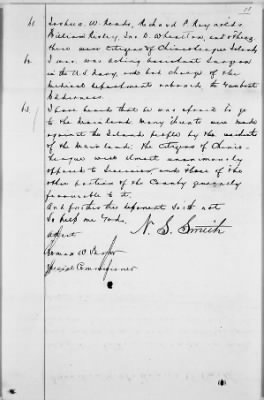 Joshua W. Reads, Richard P. Reynolds
William Lewis, Jas D. Whealton, and others,
these were citizens of Chincoteague Islands
6. I was was acting assistant Surgeon
in the U.S. Navy, and had charge of the
medical departments onboard the Gunboat
13. I have heard that he was afraid to go
to the Mainland. Many threats were made
against the Islands people by the residents
of the Mainland. The Citizens of Chinco-
teague were almost unanimously
opposed to Secession, and those of the
other portion of the County generally
favourable to it.
And further this deponent saith not
So help me God.
N. S. Smith
Attest
Thomas W. Taylor
Special Commissioner